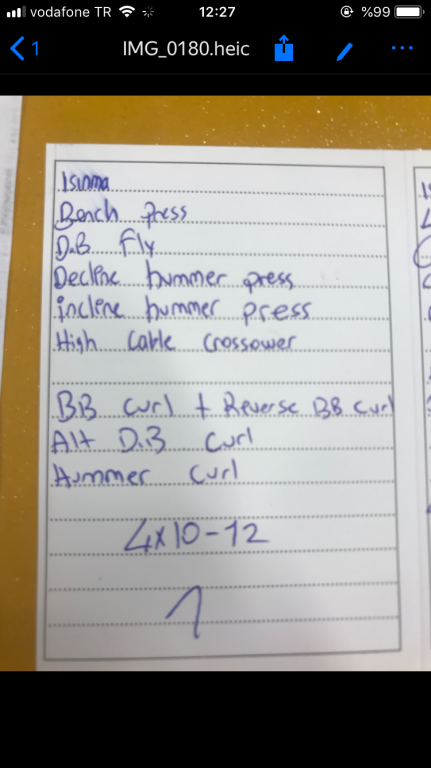 vodafone TR 12:27 %99
1 IMG_0180.heic
Isınma
Bench press
D.B Fly
Declıne hummer press
inclene hummer press
High Cable Crossower
BB curl + Reverse BB curl
Alt D.B curl
Hummer curl
4x10-12
1